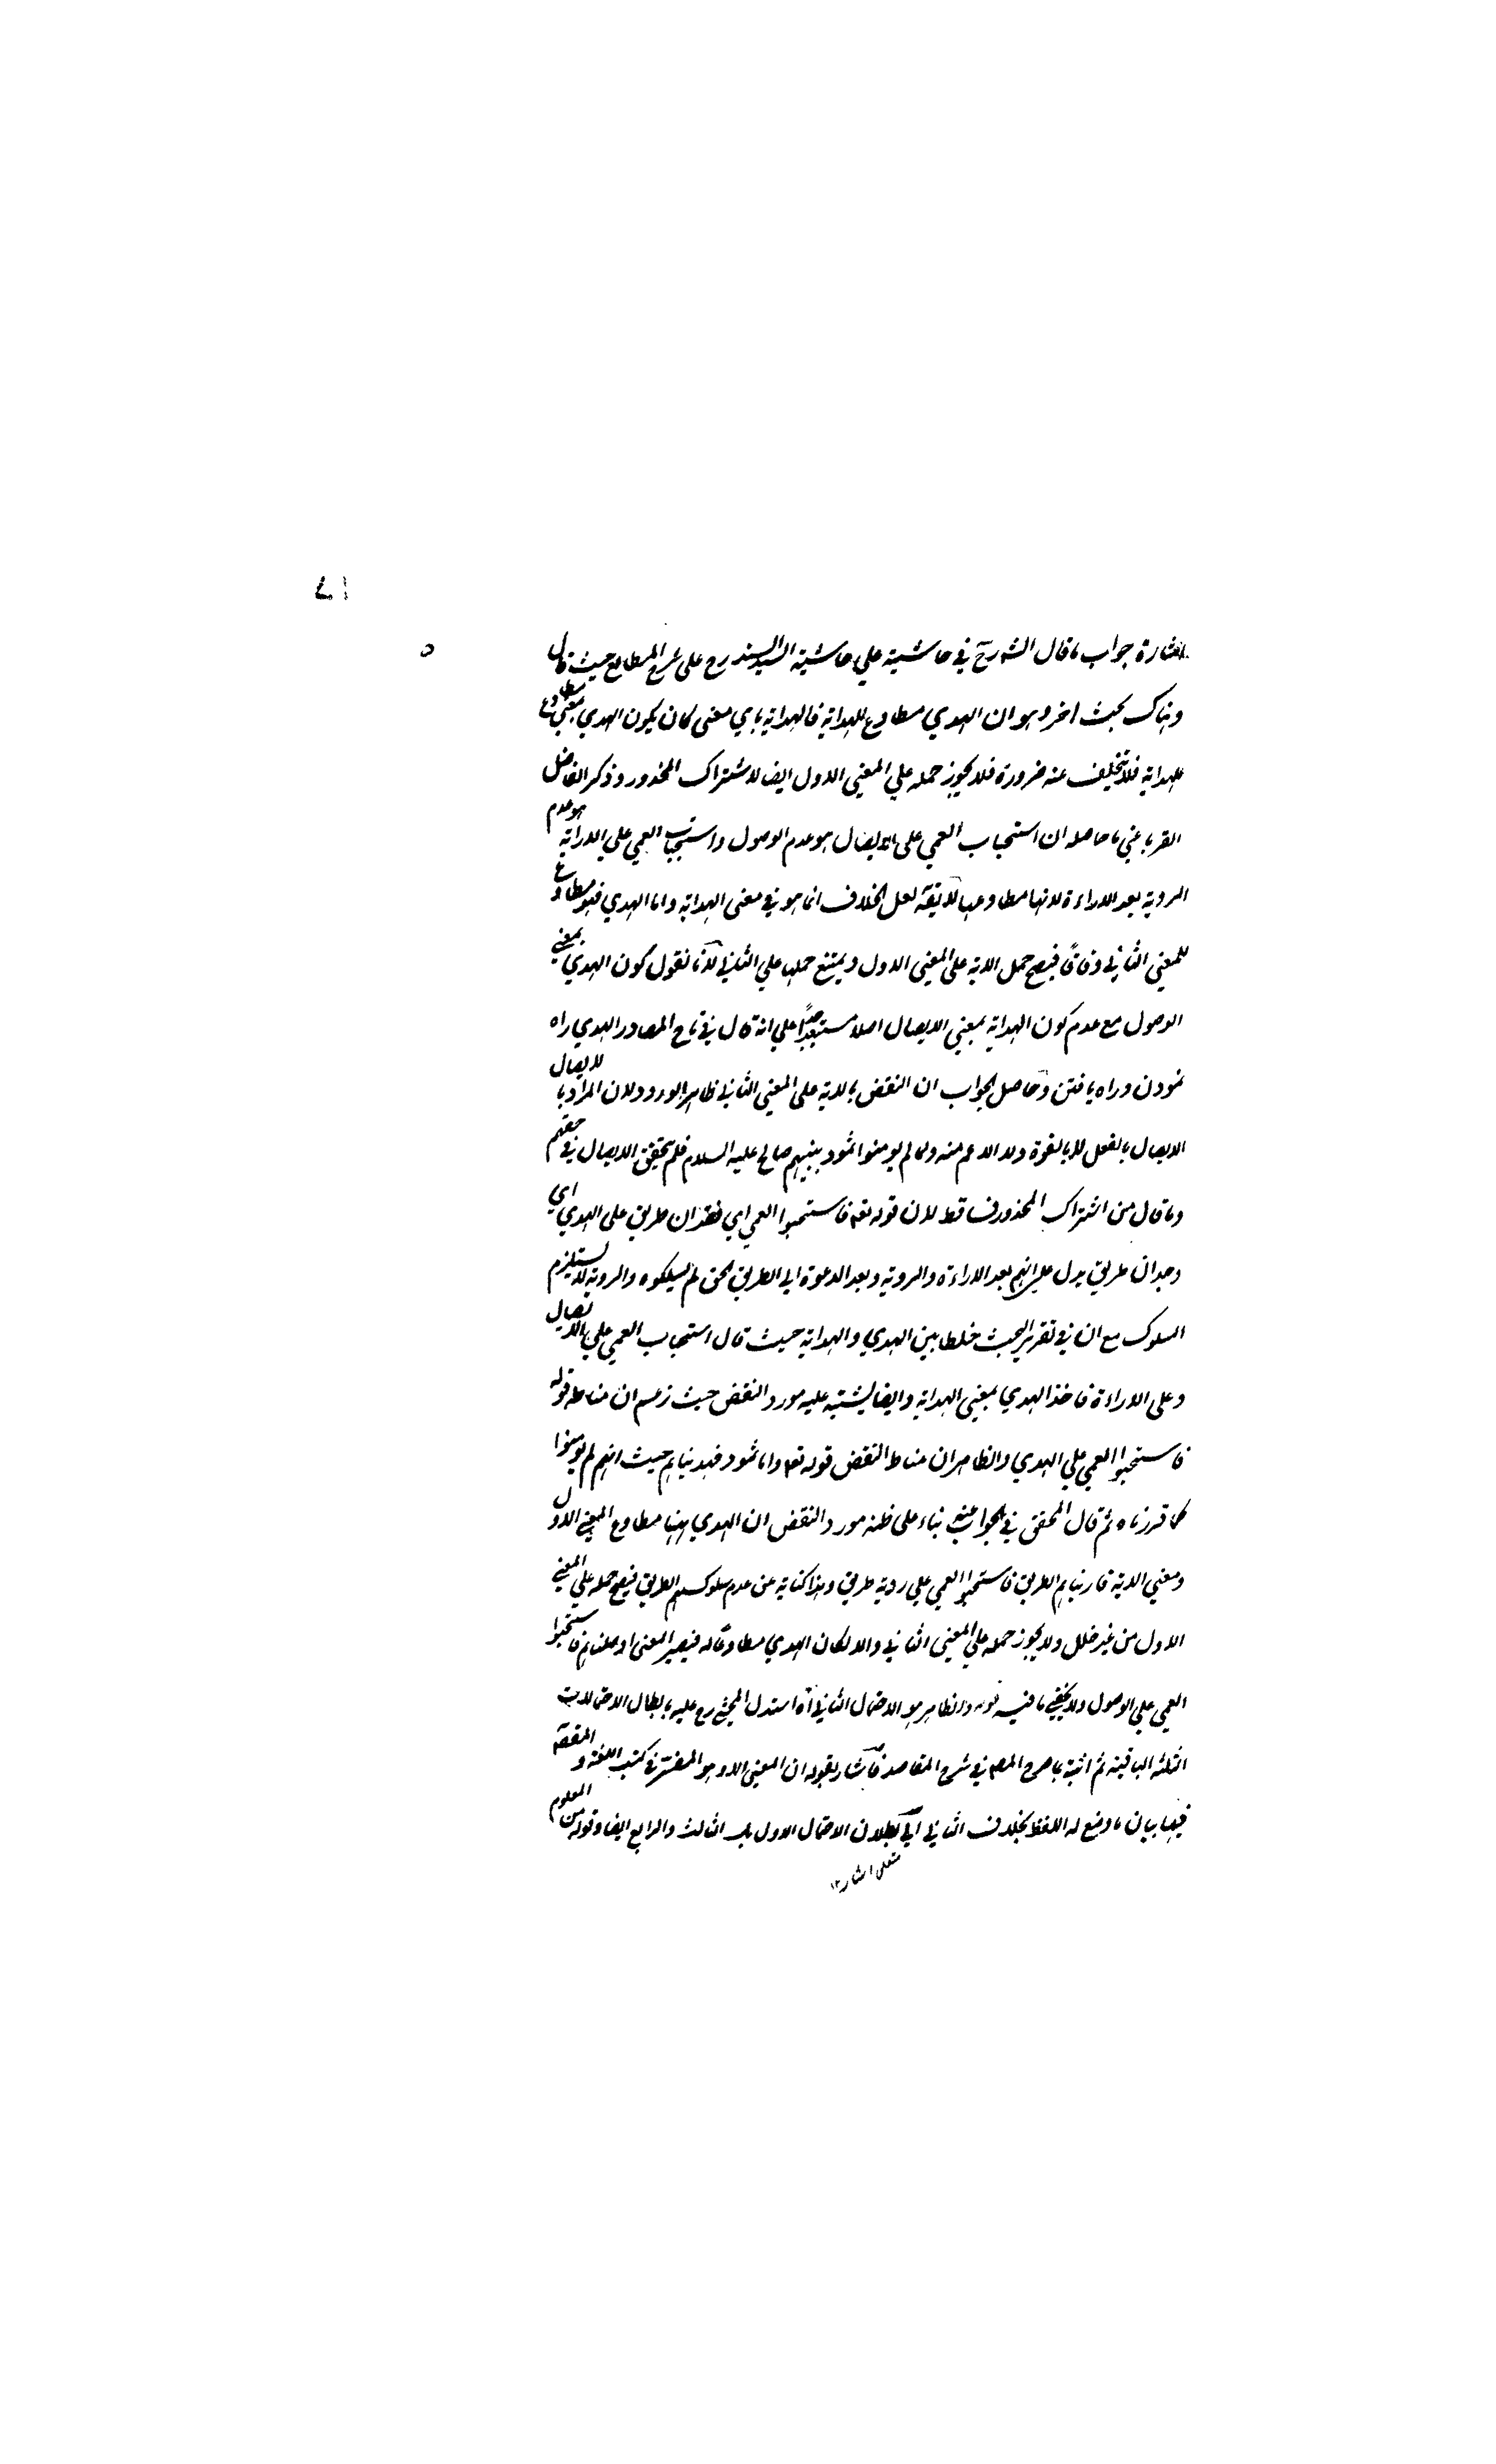 اشارة جواب ما قال الشه رح في حاشيته علي حاشية السيد السند رح على شرح المطالع حيث قال
وهناك بحث اخر وهو ان الهدي مطاوع للهداية فالهداية باي معنى كان يكون الهدي بمعنى مطاوع
للهداية فلا يتخلف عنه ضرورة فلا يجوز حمله علي المعني الاول ايضا لاشتراك المحذور وذكر الفاضل
القرباغي ما حاصله ان استحباب العمي على الايصال هو عدم الوصول واستحباب العمي علي الاراية هو عدم
الروية بعد الاراءة لانها مطاوعها لا يقه لعل الخلاف انما هو في معنى الهداية واما الهدي فهو مطاوع
للمعني الثاني وفاقا فيصح حمل الاية على المعني الاول ويمتنع حملها علي الثاني لانا نقول كون الهدي بمعني
الوصول مع عدم كون الهداية بمعني الايصال اصلا مستبعد جدا علي انه قال في تاج المصادر الهدي راه
نمودن وراه يافتن وحاصل الجواب ان النقض بالاية على المعني الثاني ظاهر الورود لان المراد بالايصال
الايصال بالفعل لا بالقوة ولا الاعم منه ولما لم يومنوا ثمود بنبيهم صالح عليه السلام فلم يتحقق الايصال في حقهم
وما قال من اشتراك المحذور فساقط لان قوله تعه فاستحبوا العمي اي فقدان طريق على الهدي اي
وجدان طريق يدل علي انهم بعد الاراءة والروية وبعد الدعوة الي الطريق الحق لم يسلكوه والروية لا يستلزم
السلوك مع ان في تقرير البحث خلطا بين الهدي والهداية حيث قال استحباب العمي علي الايصال
وعلى الاراءة فاخذ الهدي بمعني الهداية وايضا يشتبه عليه مورد النقض حيث زعم ان مناطه قوله
فاستحبوا العمي علي الهدي والظاهر ان مناط النقض قوله تعه واما ثمود فهديناهم حيث انهم لم يومنوا
كما قررناه ثم قال المحقق في الجواب عنه بناء على ظنه مورد النقض ان الهدي ههنا مطاوع المعني الاول
ومعني الاية فاريناهم الطريق فاستحبوا العمي علي روية طريق وهذا كناية عن عدم سلوكهم الطريق فيصح حمله علي المعني
الاول من غير خلل ولا يجوز حمله علي المعني الثاني والا لكان الهدي مطاوعا له فيصير المعنى اوصلناهم فاستحبوا
العمي علي الوصول ولا يخفي ما فيه قوله والظاهر هو الاحتمال الثاني اه استدل المحشي رح عليه بابطال الاحتمالات
الثلثة الباقية ثم اثبته بما صرح المصه في شرح المقاصد فاشار بقوله ان المعني الاول هو المفسر في كتب اللغة و
فيها بيان ما وضع له اللفظ بخلاف الثاني الي بطلان الاحتمال الاول بل الثالث والرابع ايضا وقوله من المعلوم
متعلق اشار ١٢